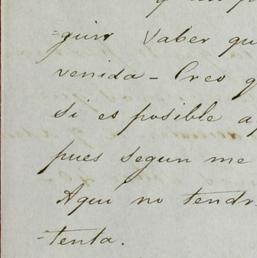 y
-guir saber qu
venida - Creo q
si es posible a
pues segun me
Aqui no tendr
-tenta.